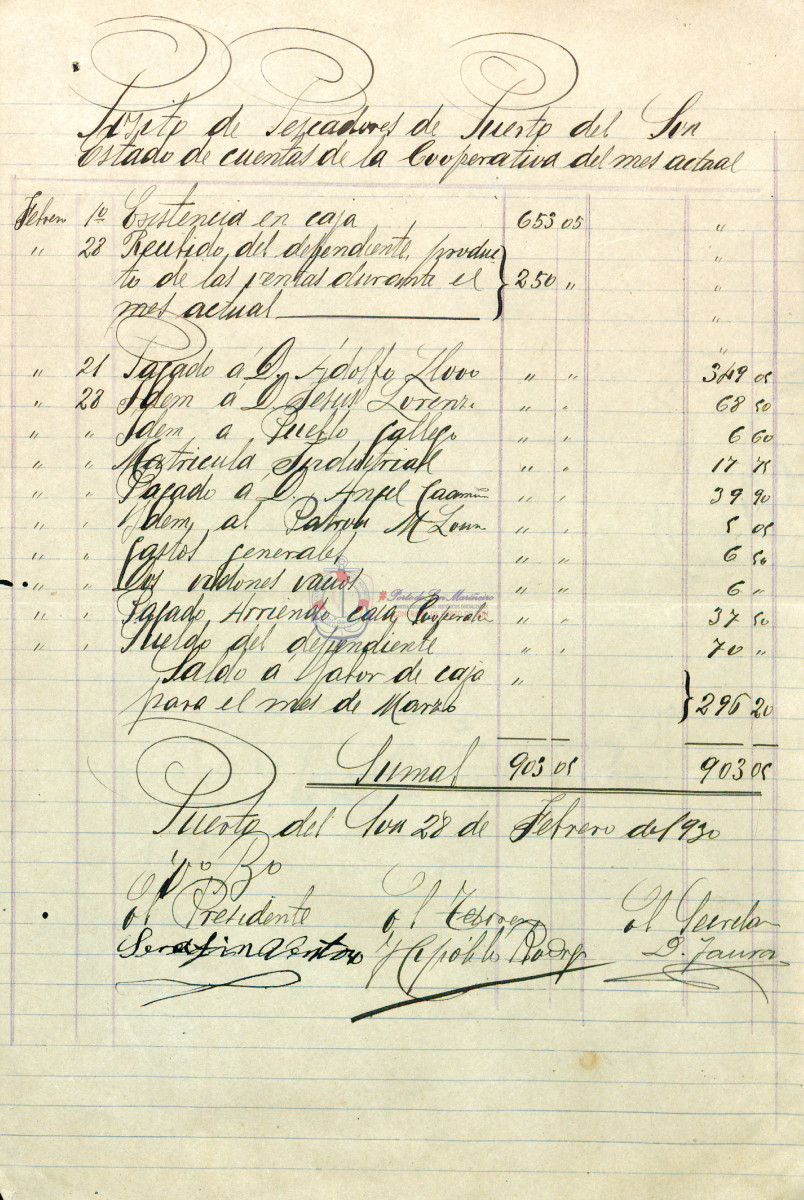 Pósito de Pescadores de Puerto del Son
Estado de cuentas de la Cooperativa del mes actual
Febrero 1º Existencia en caja 653 05 "
" 28 Recibido del dependiente, produc- "
to de las ventas durante el 250 " "
mes actual "
"
" 21 Pagado á D. Adolfo Llovo " " 349 05
" 28 Idem á D Jesús Lorenzo " " 68 50
" " Idem a Pueblo Gallego " " 6 60
" " Matricula Industrial " " 17 75
" " Pagado á D. Angel Caamñ " " 39 90
" " Idem, al Patron M " " 5 05
" " Gastos generales " " 6 50
" " Dos vidones vacios " " 6 "
" " Pagado, Arriendo casa Cooperati " " 37 50
" " Sueldo del dependiente " " 70 "
Saldo á favor de caja "
para el mes de Marzo 296 20
Suman 903 05 903 05
Puerto del Son 28 de Febrero de 1930
Vº Bº
El Presidente El Tesorero El Secreta
Serafin Hipólito Rodrg D.
Porto do Son Mariñeiro